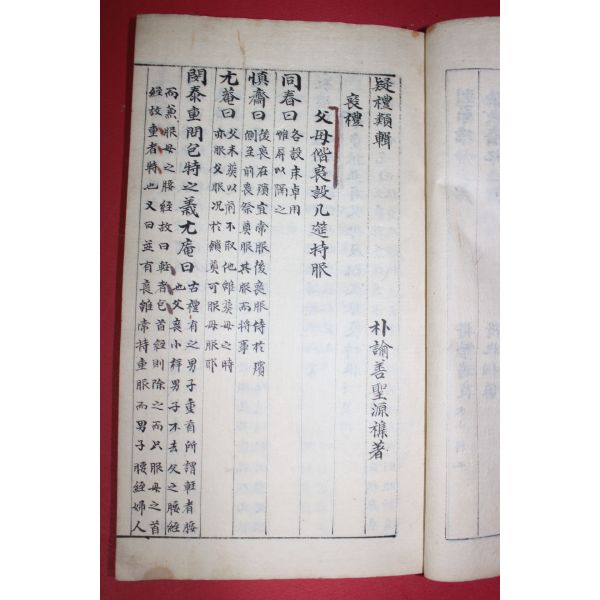 疑禮類輯
朴諭善聖源裸著
喪禮
父母偕喪設几筵持服
同春曰各設床卓用
惟屏以隔之
慎齋曰後喪在殯宜常服後喪服侍於殯
側至前喪祭奠服其服而將事
尤菴曰父未葬以前不取他雖葬母之時
亦服父服况於饋奠可服母服耶
閔泰重問包特之義尤庵曰古禮有之男子重首所謂輕者腰
也父喪小祥男子不去父之腰絰
而兼服母之腰絰故曰輕者包首絰則除之而只服母之首
絰故重者特也又曰並有喪雖常持重服而男子腰絰婦人